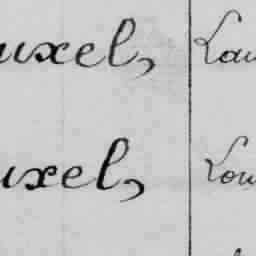 uxel, Lau
uxel, Lou